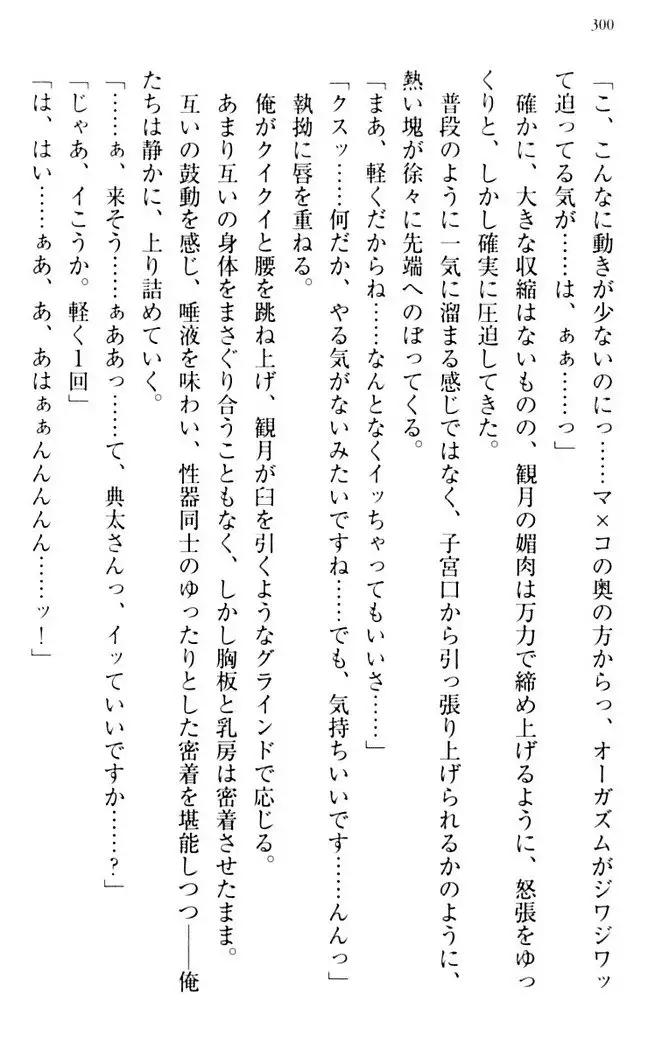 300
「こ、こんなに動きが少ないのにっ……マ×コの奥の方からっ、オーガズムがジワジワッ
て迫ってる気が……は、ぁぁ……っ」
確かに、大きな収縮はないものの、観月の媚肉は万力で締め上げるように、怒張をゆっ
くりと、しかし確実に圧迫してきた。
普段のように一気に溜まる感じではなく、子宮口から引っ張り上げられるかのように、
熱い塊が徐々に先端へのぼってくる。
「まあ、軽くだからね……なんとなくイッちゃってもいいさ……」
「クスッ……何だか、やる気がないみたいですね……でも、気持ちいいです……んんっ」
執拗に唇を重ねる。
俺がクイクイと腰を跳ね上げ、観月が臼を引くようなグラインドで応じる。
あまり互いの身体をまさぐり合うこともなく、しかし胸板と乳房は密着させたまま。
互いの鼓動を感じ、唾液を味わい、性器同士のゆったりとした密着を堪能しつつ――俺
たちは静かに、上り詰めていく。
「……ぁ、来そう……ぁああっ……て、典太さんっ、イッていいですか……?」
「じゃあ、イこうか。軽く1回」
「は、はい……ぁあ、あ、あはぁぁんんんんん……ッ!」